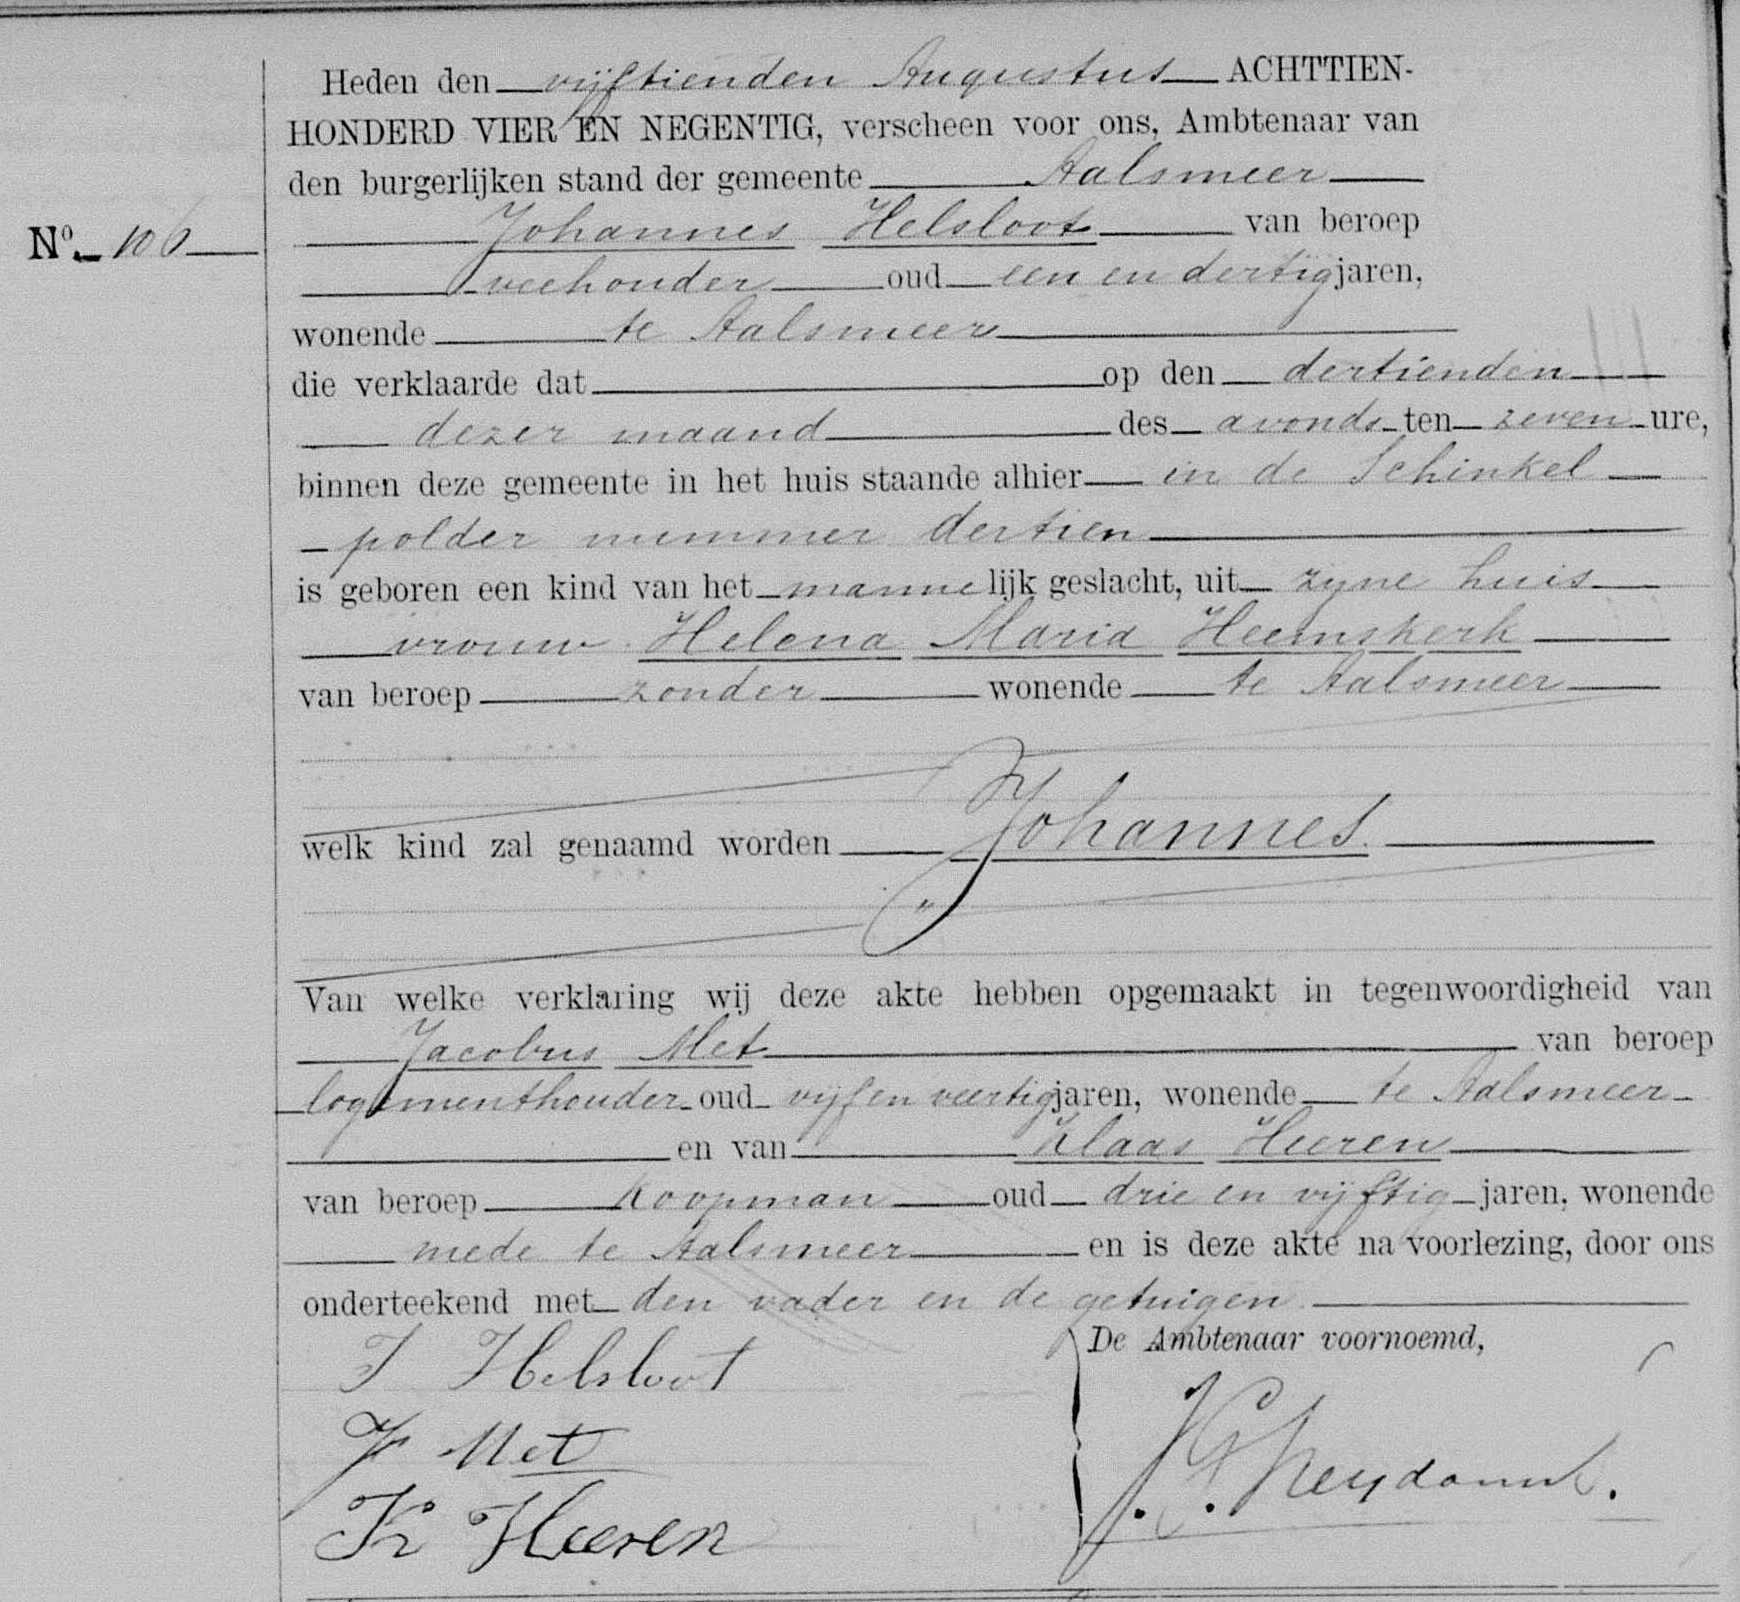 Heden den vijftienden Augustus ACHTTIEN-
HONDERD VIER EN NEGENTIG, verscheen voor ons, Ambtenaar van
den burgerlijken stand der gemeente Aalsmeer
Johannes Helsloot van beroep
No. 106
veehouder oud een en dertig jaren,
wonende te Aalsmeer
die verklaarde dat op den dertienden
dezer maand des avonds ten zeven ure,
binnen deze gemeente in het huis staande alhier in de Schinkel
polder nummer dertien
is geboren een kind van het mannelijk geslacht, uit zijne huis
vrouw Helena Maria Heemskerk
van beroep zonder wonende te Aalsmeer
welk kind zal genaamd worden Johannes.
Van welke verklaring wij deze akte hebben opgemaakt in tegenwoordigheid van
Jacobus Met van beroep
logementhouder oud vijf en veertig jaren, wonende te Aalsmeer
en van Klaas Heeren
van beroep Koopman oud drie en vijftig jaren, wonende
mede te Aalsmeer en is deze akte na voorlezing, door ons
onderteekend met den vader en de getuigen.
De Ambtenaar voornoemd,
J Helsloot
J Met
K Heeren